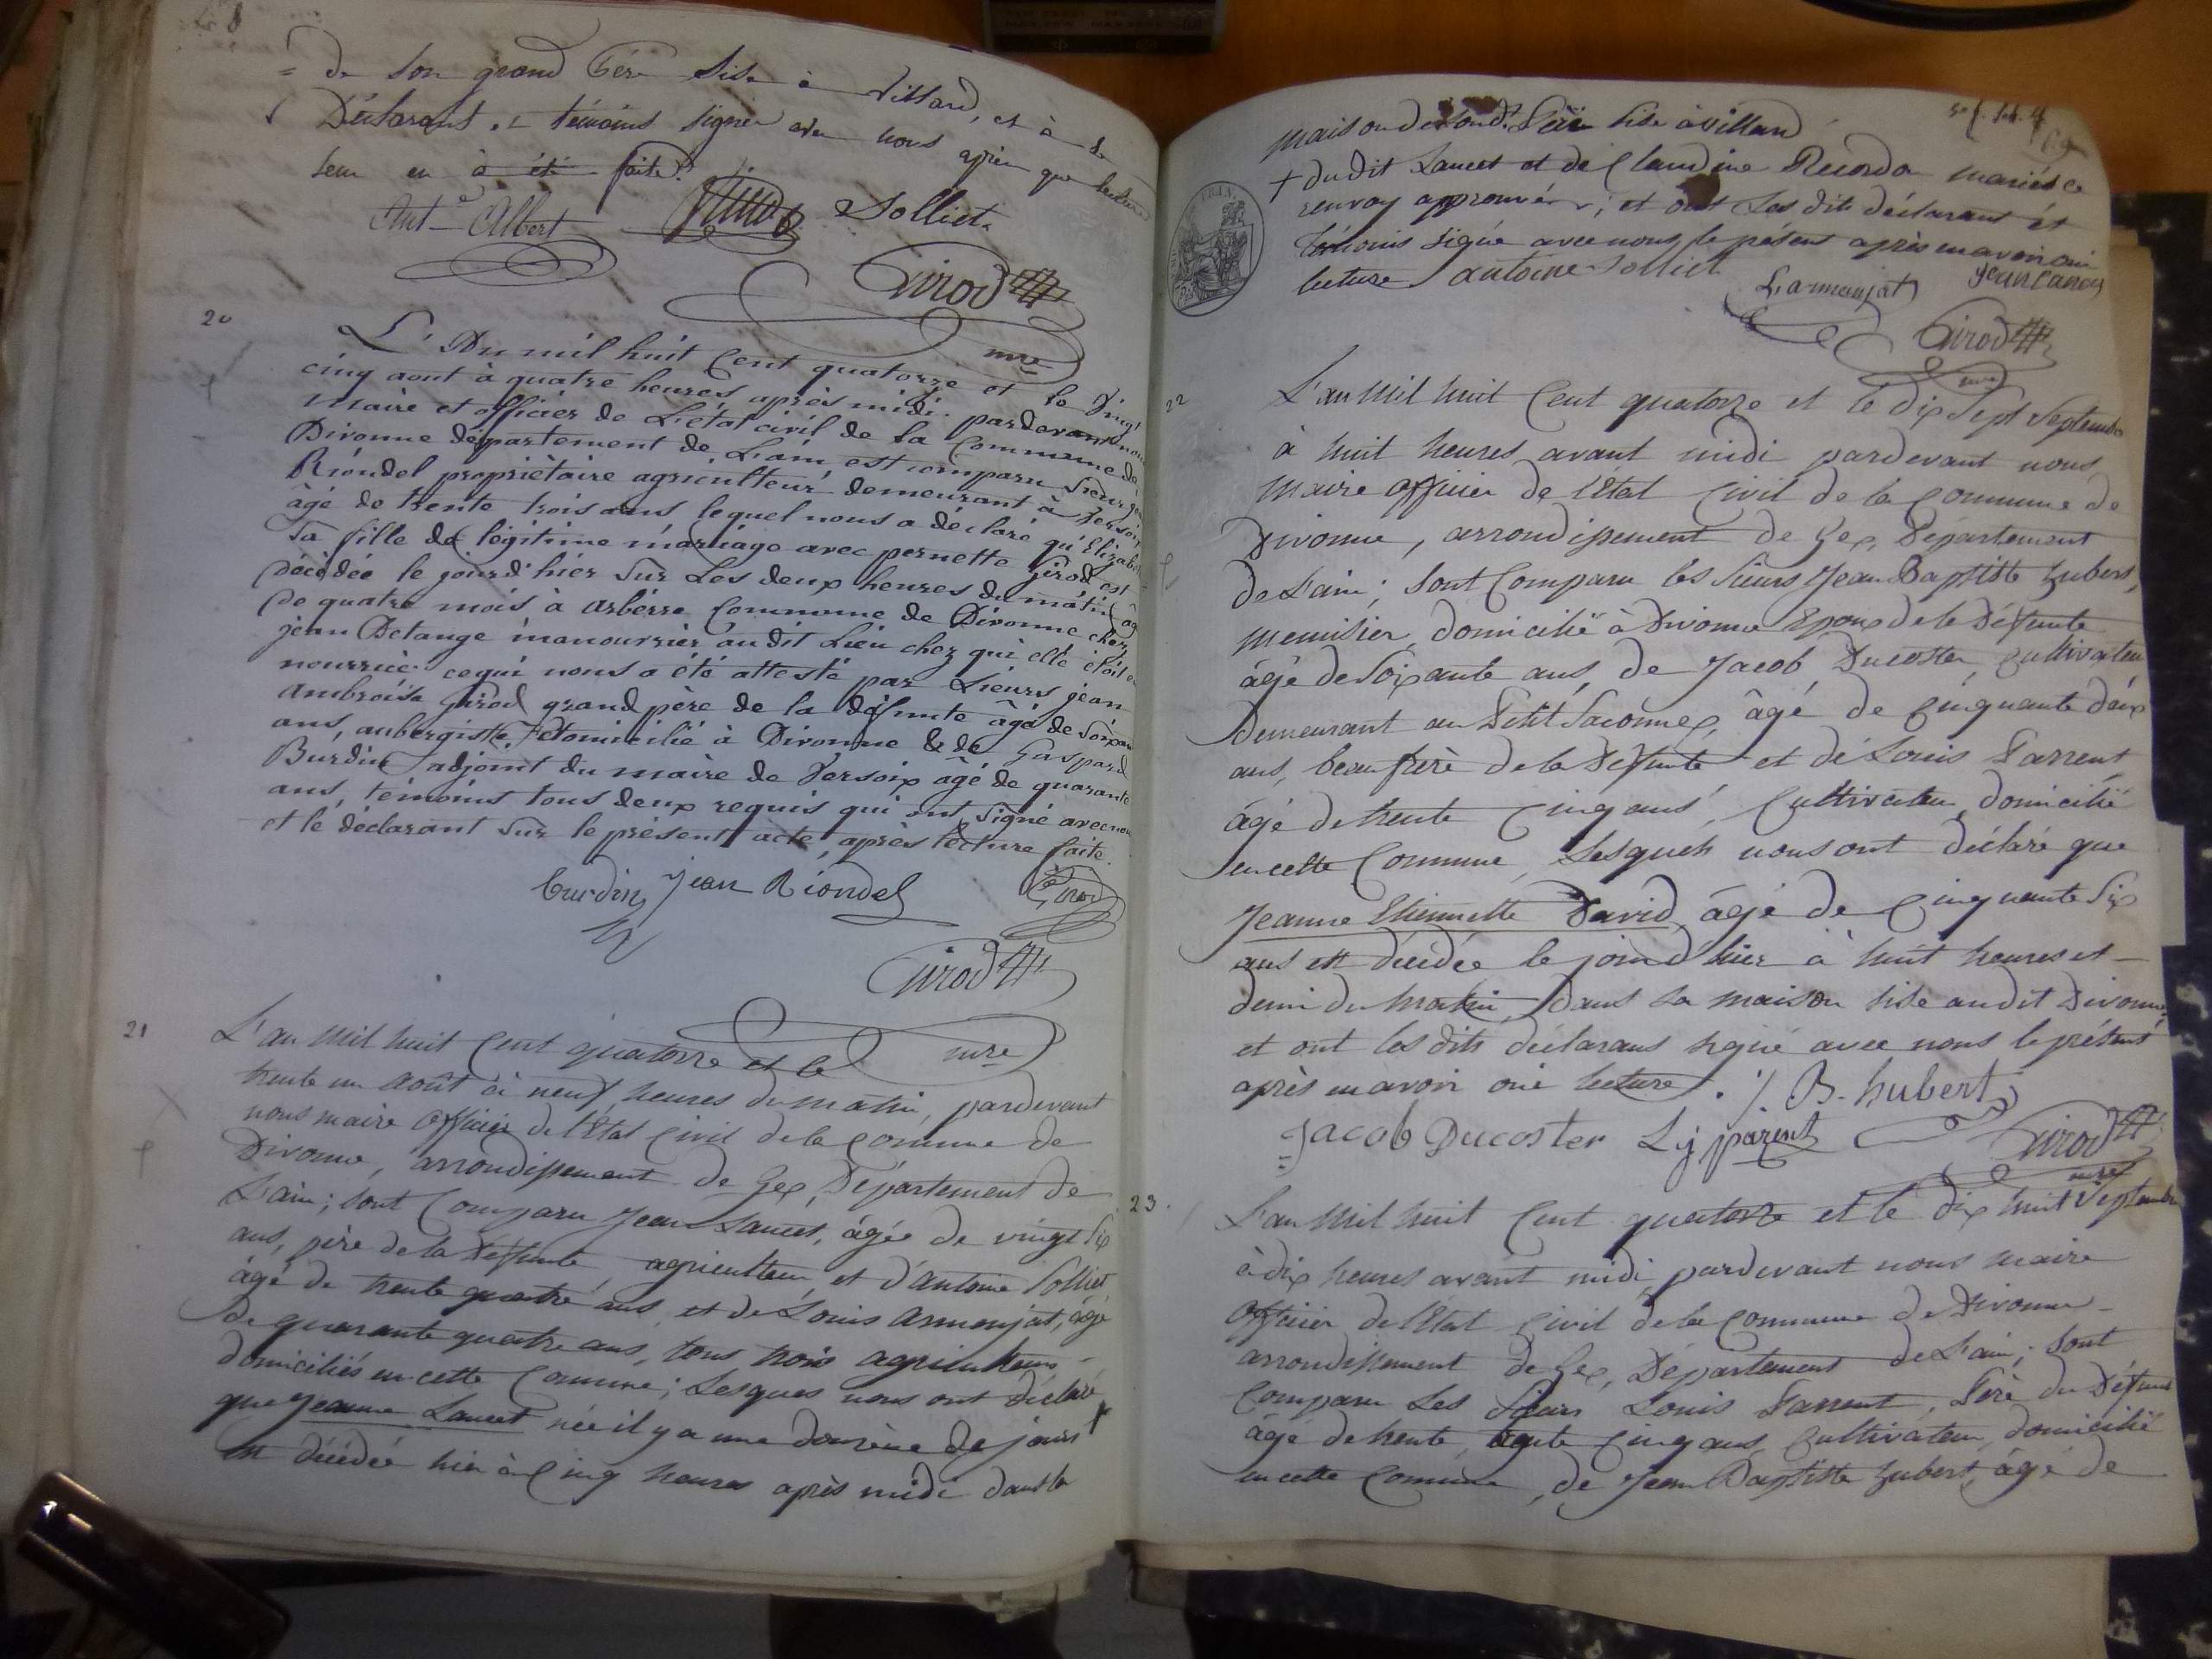 de son grand Père sise à villard, et à le
Déclarant et témoins signer avec nous après que lecture
leur en à été faite.
Ant.e Albert Solliet
Girod
mre
20
L'An mil huit Cent quatorze et le vingt
cinq aout à quatre heures après midi. pardevant nous
Maire et officier de L'état civil de la Commune de
Divonne département de L'ain, est comparu Sieur jean
Riondel propriètaire agriculteur demeurant à Versoix
âgé de trente trois ans lequel nous a déclaré qu'Elizabeth
sa fille de légitime mariage avec pernette girod est
décédée le jourd'hier sur Les deux heures du matin âgée
de quatre mois à arbérre Commune de Divonne chez
jean Detange manouvrier au dit Lieu chez qui elle étoit en
nourrice ce qui nous a été attesté par Sieurs jean
Ambroise girod grand père de la défunte âgé de soixante
ans, aubergiste, domicilié à Divonne & de Gaspard
Burdin adjoint du maire de Versoix âgé de quarante
ans, témoins tous deux requis qui ont signé avec nous
et le déclarant sur le présent acte, après lecture faite.
burdin Jean Riondel Girod
Girod
mre
21
L'an Mil huit Cent quatorze et le
trente un Août à neuf heures du matin, pardevant
nous maire Officier de l'État Civil de la Commune de
Divonne, arrondissement de Gex, Département de
L'ain; sont Comparu Jean Lancet, âgée de vingt six
ans, père de la Défunte agriculteur et d'antoine Solliet
âgé de trente quatre ans, et de Louis Armenjat, âgé
de quarante quatre ans, tous trois agriculteurs
domiciliés en cette Commune; Lesques nous ont déclaré
que Jeanne Lancet née il y a une douzène de jours +
est décédée hier à Cinq heures après midi dans la
maison de sond. Père sise à Villard
+ du dit Lancet et de Claudine Recordon mariés ce
renvoy approuvé; et ont Les dits déclarant et
témoins signé avec nous le présent après en avoir oui
lecture antoine Solliet L armenjat jean Lancet
Girod
mre
22
L'an Mil huit Cent quatorze et le dix Sept Septembre
à huit heures avant midi pardevant nous
Maire officier de l'État Civil de la Commune de
Divonne, arrondissement de Gex, Département
de L'ain; sont Comparu les sieurs Jean Baptiste hubert,
Menuisier domicilié à Divonne Epoux de la Défunte
âgé de Soixante ans, de Jacob Ducoster Cultivateur
demeurant au Petit Saconnex, âgé de Cinquante deux
ans, beaufrère de la Défunte et de Louis Parrent
âgé de trente Cinq ans, Cultivateur domicilié
en cette Commune, Lesquels nous ont déclaré que
Jeanne Etiennette David âgé de Cinquante Six
ans est décédée le jourd'hier à huit heures et
demi du matin, dans sa maison sise audit Divonne
et ont les dits déclarans signé avec nous le présent
après en avoir oui lecture. J B. hubert
Jacob Ducoster L j parent Girod
mre
23.
L'an Mil huit Cent quatorze et le dix huit Septembre
à dix heures avant midi, pardevant nous maire
Officier de l'État Civil de la Commune de Divonne
arrondissement de Gex, Département de L'ain; sont
Comparu Les Sieurs Louis Parrent, Père du Défunt
âgé de trente Cinq ans, Cultivateur, domicilié
en cette Commune, de Jean Baptiste hubert, âgé de